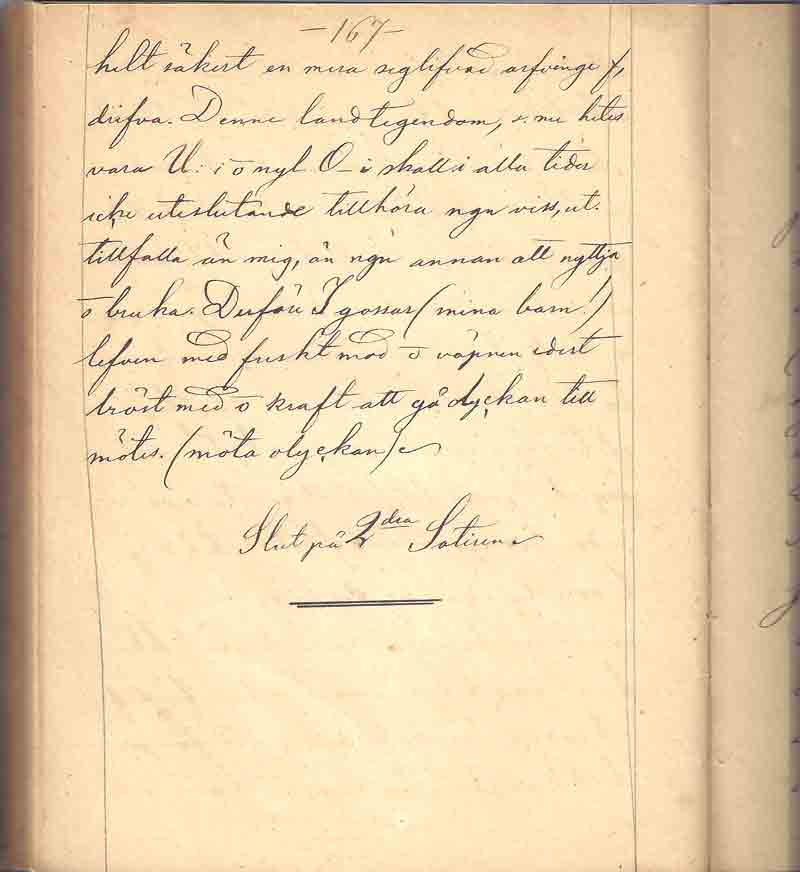 —167—
helt säkert en mera seglifvad arfvinge f,
drifva. Denne landtegendom, s. nu hetes
vara U: i ō nyl O— i skall i alla tider
icke uteslutande tillhöra ngn viss, ut.
tillfalla än mig, än ngn annan att nyttja
ō bruka. Derföre I gossar (mina barn!)
lefven med friskt mod ō väpnen edert
bröst med ō kraft att gå olyckan till
mötes. (möta olyckan)
Slut på 2dra Satiren